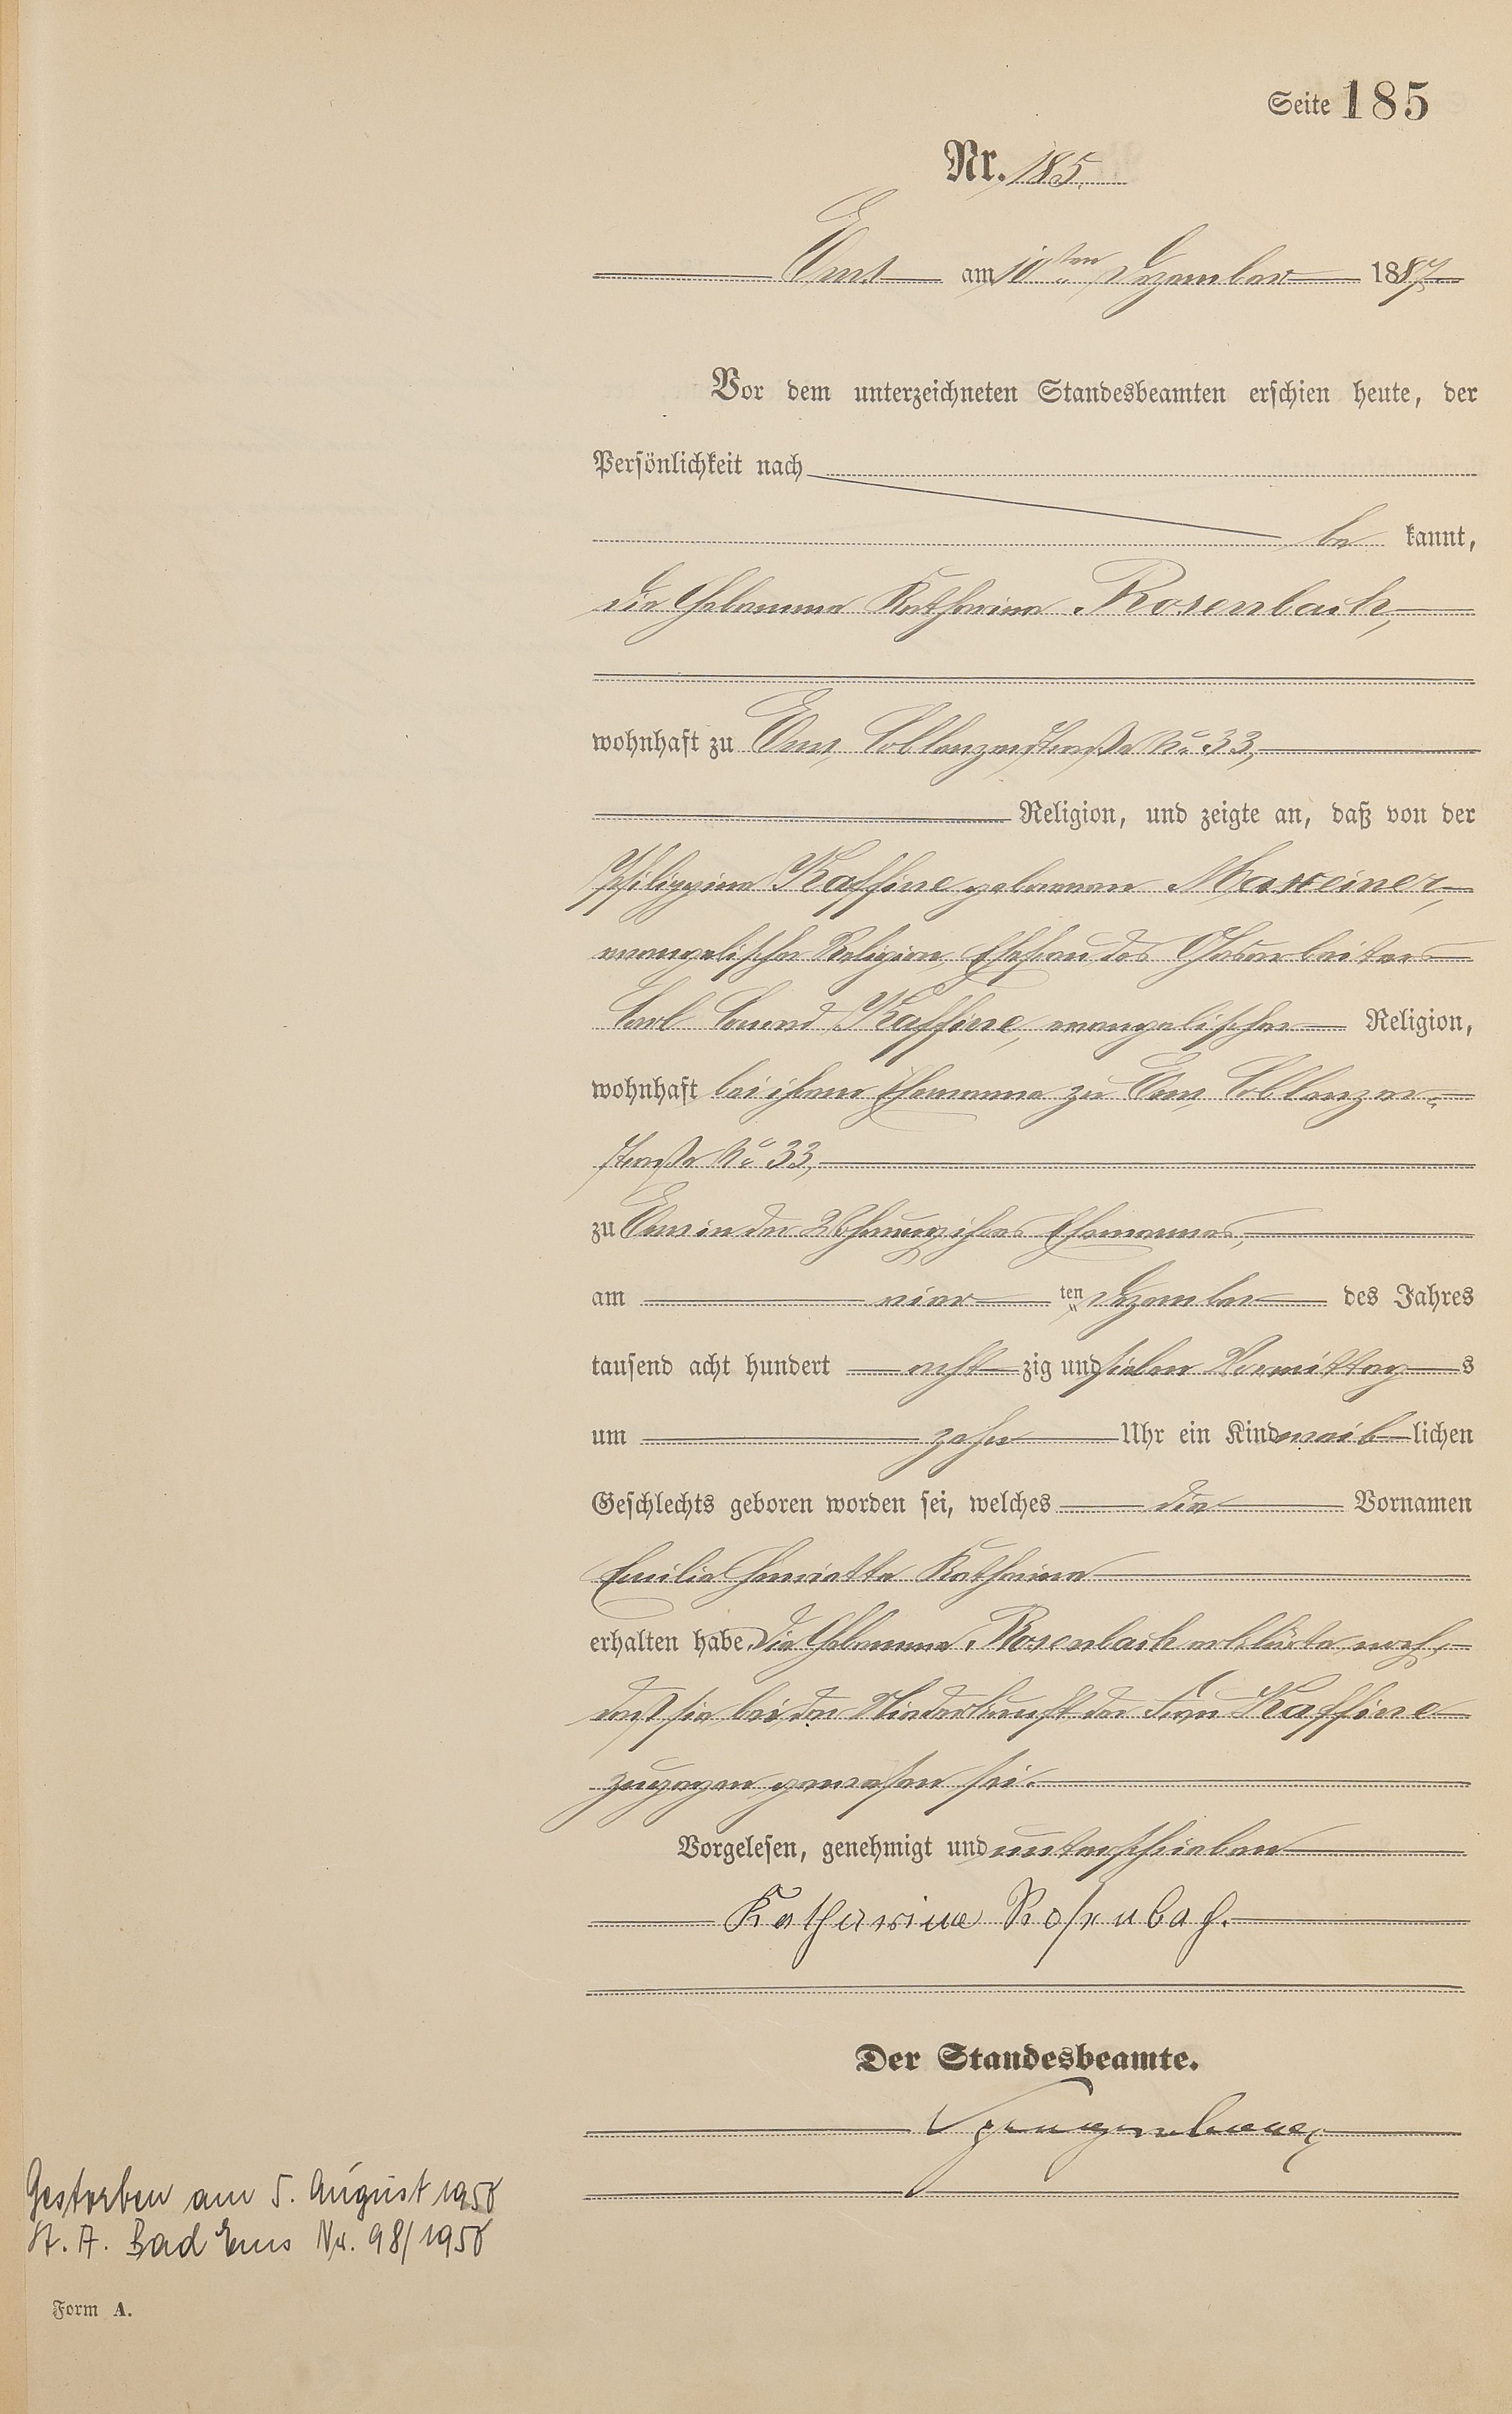 Seite 185
Nr. 185.
Ems am 10ten Dezember 1887.
Vor dem unterzeichneten Standesbeamten erschien heute, der
Persönlichkeit nach
be kannt,
die Hebamme Katharina Rosenbach,
wohnhaft zu Ems, Coblenzerstraße No 33,
Religion, und zeigte an, daß von der
Philippine Kaffine geborenen Maxeiner,
evangelischer Religion, Ehefrau des
Carl Kaffine, evangelischer Religion,
wohnhaft bei ihrem Ehemanne zu Ems, Coblenzer-
straße No 33,
zu Ems in der Wohnung ihres Ehemannes,
am vier ten Dezember des Jahres
tausend acht hundert acht zig und sieben Vormittag s
um zehn Uhr ein Kind weib lichen
Geschlechts geboren worden sei, welches die Vornamen
Emilie Henriette Katharina
erhalten habe. Die Hebamme Rosenbach erklärte noch,
daß sie bei der Niederkunft der Frau Kaffine
zugegen gewesen sei.
Vorgelesen, genehmigt und unterschrieben
Katharina Rosenbach.
Der Standesbeamte.
Gestorben am 5. August 1958
St. A. Bad Ems Nr. 98/1958
Form A.